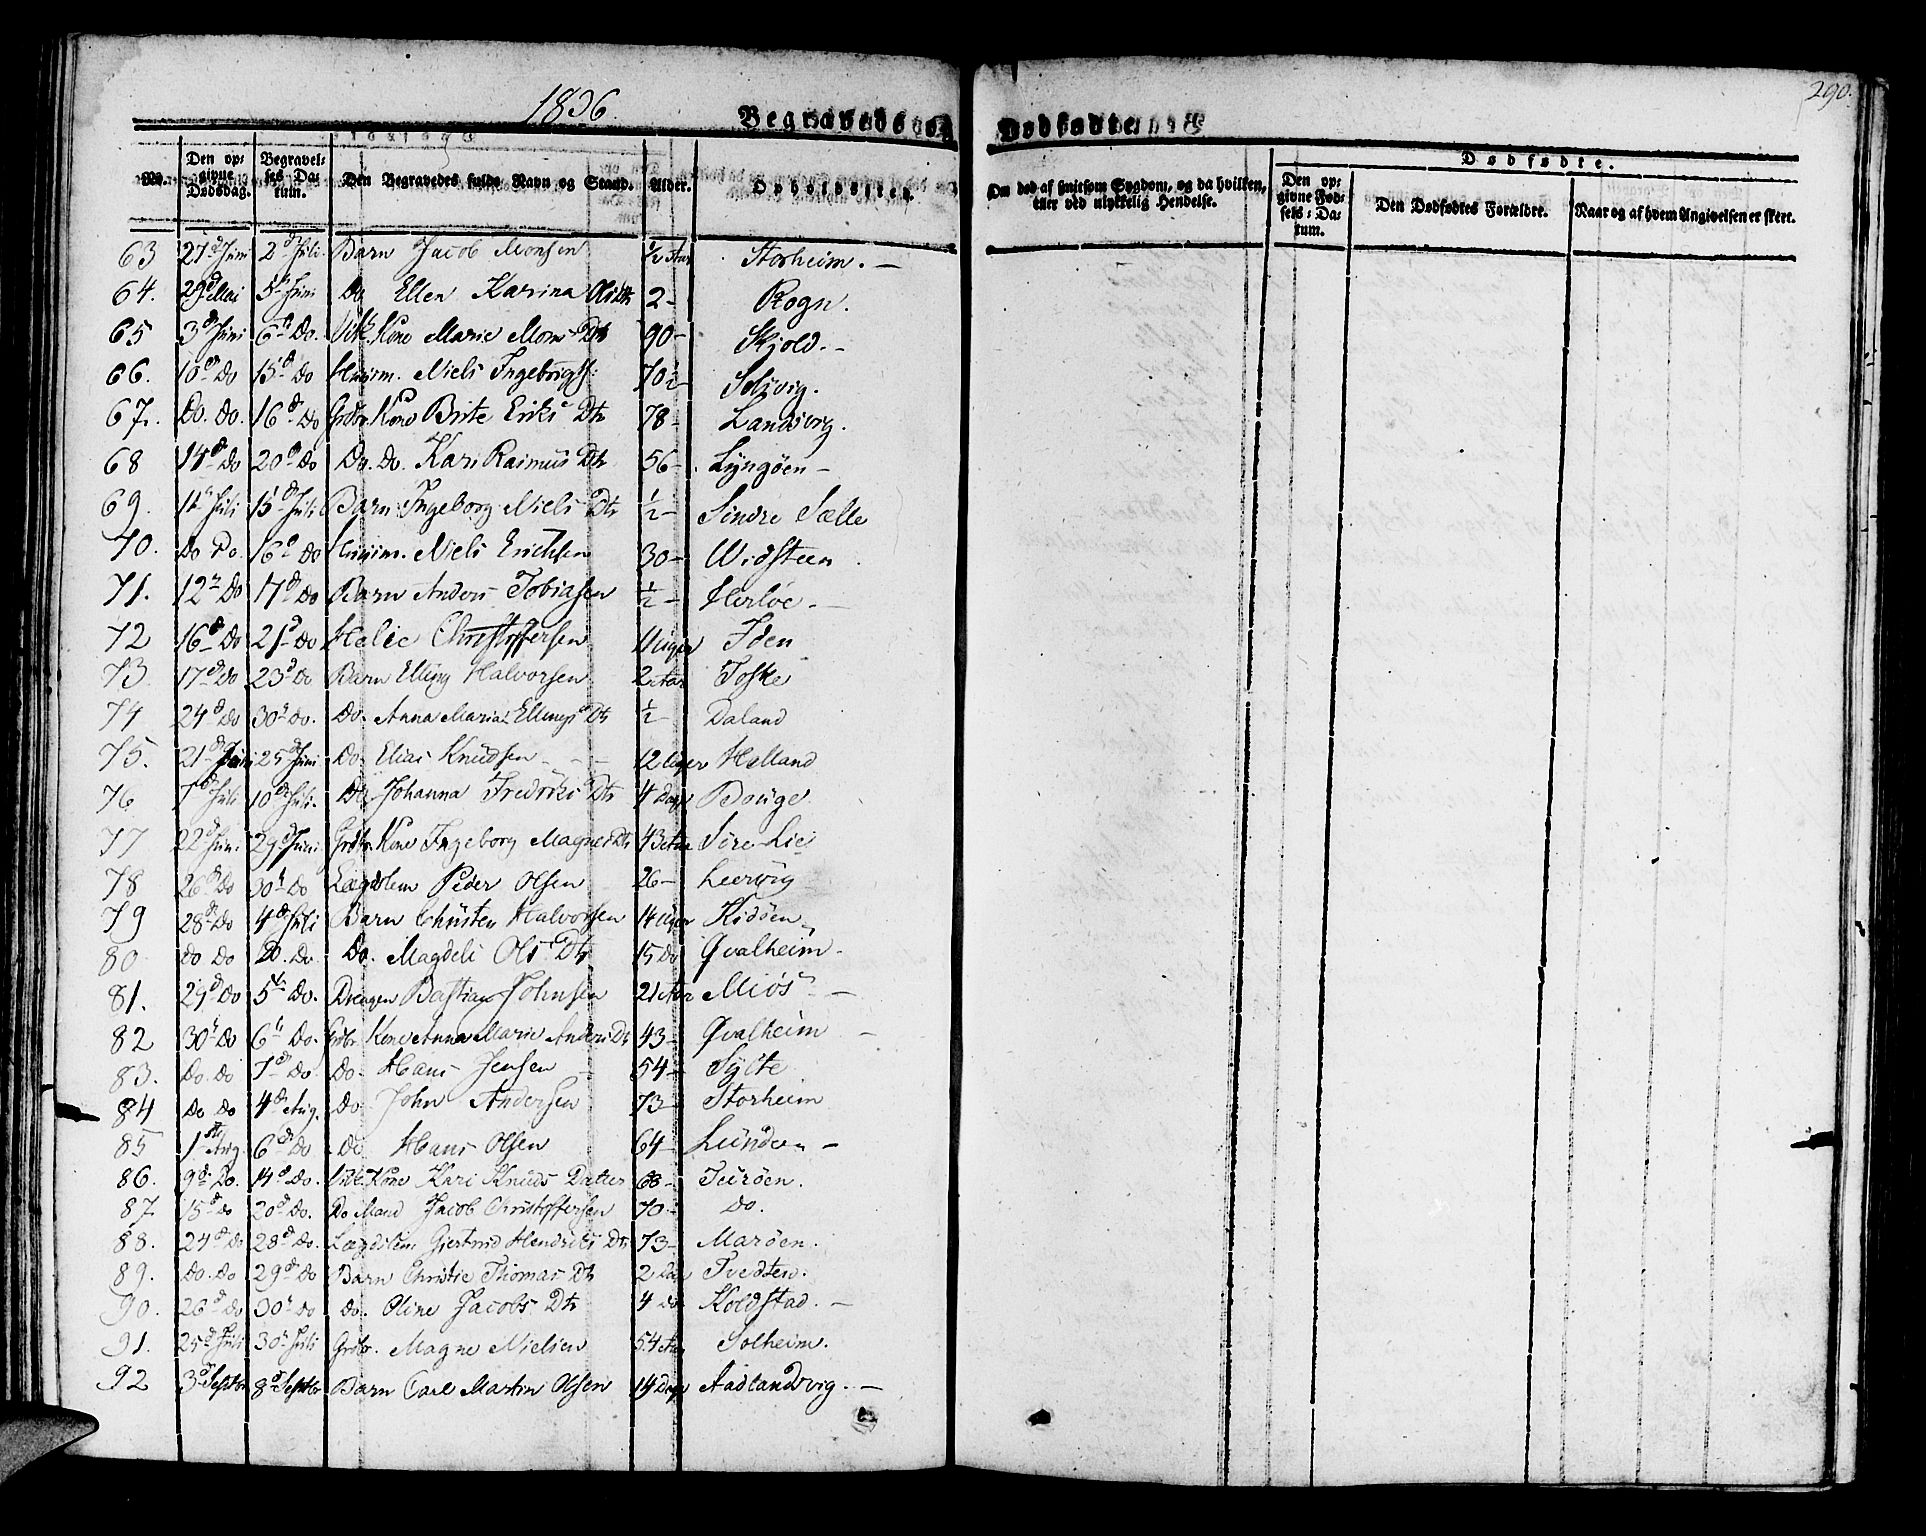 1836
Begravede og Dødfødte
290.
No. Den opgivne Dødsdag. Begravelses Datum. Den Begravedes fulde Navn og Stand. Alder. Opholdssted. Om død af smitsom Sygdom, og da hvilken, eller ved ulykkelig Hendelse. Dødfødte. Den opgivne Fødsels-Datum. Den Dødfødtes Forældre. Naar og af hvem Angivelsen er skeet.
63 27d Juni 2d Juli Barn Jacob Monsen 1/2 Aar Storheim. —
64. 29d Mai 5te Juni Do Ellen Karina Olsdtr 2 - Rogn.
65 3d Juni 6te Do. Vilk. Kone Marie Mons Dtr 90 - Skjold. -
66. 10d Do 15d Do Huusm. Niels Ingebrigts. 70 1/2 - Solvig.
67. Do. Do. 16d Do Grdbr. Kone Brite Eriks Dtr 78 - Landsvig.
68 14d Do 20d Do Do. Do. Kari Rasmus Dtr 56 - Lyngöen -
69. 11te Juli 15d Juli Barn Ingeborg Niels Dtr 1/2 - Sindre Sælle
70. Do Do. 16d Do Huusm. Niels Erichsen 30 - Widsteen
71. 12te Do 17d Do Barn Anders Tobiasen 1/2 - Herløe -
72 16d Do 21d Do Christoffersen 11 Uger Iden
73 17d Do 23d Do Barn Elling Halvorsen 2 Aar Toske
74 24d Do 30te Do. Do. Anna Maria Ellings Dtr 1/2 - Daland
75. 21d Juni 25d Juni Do Elias Knudsen - - 12 Uger Halland
76 7d Juli 10de Juli. Do Johanna Fredriks Dtr 4 Dage Bouge
77 22d Juni 29d Juni Grdbr. Kone Ingeborg Magnes Dtr 43 Aar Søre Lie
78 26d Do 30te Do Lægdslem Peder Olsen 26 - Leervig
79 28d Do 4d Juli Barn Christen Halvorsen 14 Uger Kidöen
80 Do Do Do. Do Do. Magdeli Ols Dtr 15 Do Qvalheim -
81. 29d Do 5te Do. Drengen Bastian Johnsen 21 Aar Miös —
82 30te Do 6te Do. Grdbr. Kone Anna Marie Anders Dtr 43 - Qvalheim -
83. Do. Do 7d Do. Do. Hans Jensen - 54 - Sylte
84 Do Do 4de Aug. Do John Andersen 73 - Storheim
85 1ste Aug. 6de Do Do Hans Olsen 64 - Lunden -
86. 9d Do. 14d Do. Vilk. Kone Kari Knuds Datter 68 - Turöen.
87. 15d Do 20d Do. Do Mand Jacob Christoffersen 70 - Do.
88. 24d Do 28d Do. Lægdslem Giertrud Hendriks Dtr 73 - Maröen.
89. Do. Do 29d Do Barn Christie Thomas Dtr 2 Dage Tvedten.
90. 26d Do 30te Do Do. Oline Jacobs Dtr 4 Do Koldstad. -
91. 25d Juli 30te Juli Grdbr. Magne Nielsen 54 Aar Solheim.
92 3d Septbr 8d Septbr Barn Carl Martin Olsen 14 Dage Aadlandsvig. —